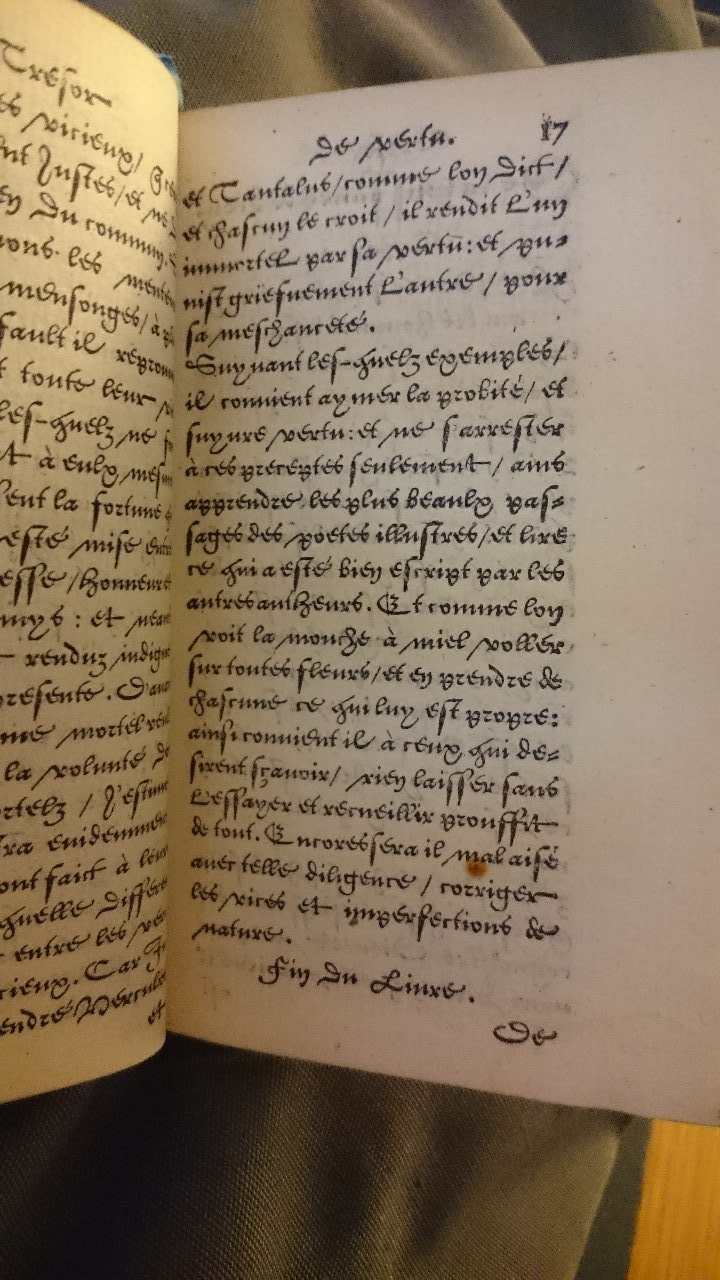 Tresor
es vicieux/
nt Justes/et ne
en du commun
ions les
mensonges/à
fault il
t toute leur
les-quelz ne
t à eulx
ent la fortune
esté mise
esse/honneur
mys: et
renduz
presente.
me mortel
la volunté
ortelz / J'estime
ra
ont faict à
quelle
entre les
cieux. Car
endre Hercules
et
de vertu. 17
et Tantalus/comme lon dict/
et chascun le croit/il rendit L'un
immortel par sa vertu: et pu-
nist griefuement L'autre/pour
sa meschanceté.
Suyuant les-quelz exemples/
il conuient aymer la probité/et
suyure vertu: et ne s'arrester
à ces preceptes seulement/ains
apprendre les plus beaulx pas-
sages des poetes illustres/et lire
ce qui a esté bien escript par les
autres autheurs. Et comme lon
voit la mouche à miel voller
sur toutes fleurs/et en prendre de
chascune ce qui luy est propre:
ainsi conuient il à ceux qui de-
sirent sçauoir/ rien laisser sans
L'essayer et recueillir prouffit
de tout. Encores sera il mal aisé
auec telle diligence/corriger
les vices et imperfections de
nature.
Fin du Liure.
De